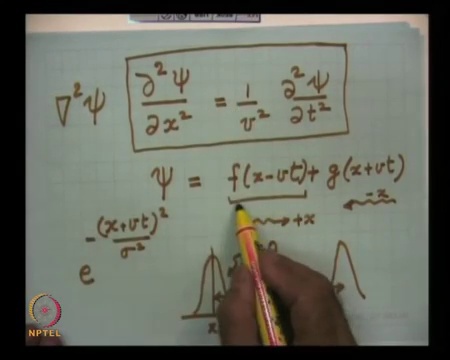 ∇²ψ  ∂²ψ/∂x² = 1/v² ∂²ψ/∂t²
ψ = f(x-vt) + g(x+vt)
→ +x  -x
e^-(x+vt)²/σ²
x
NPTEL